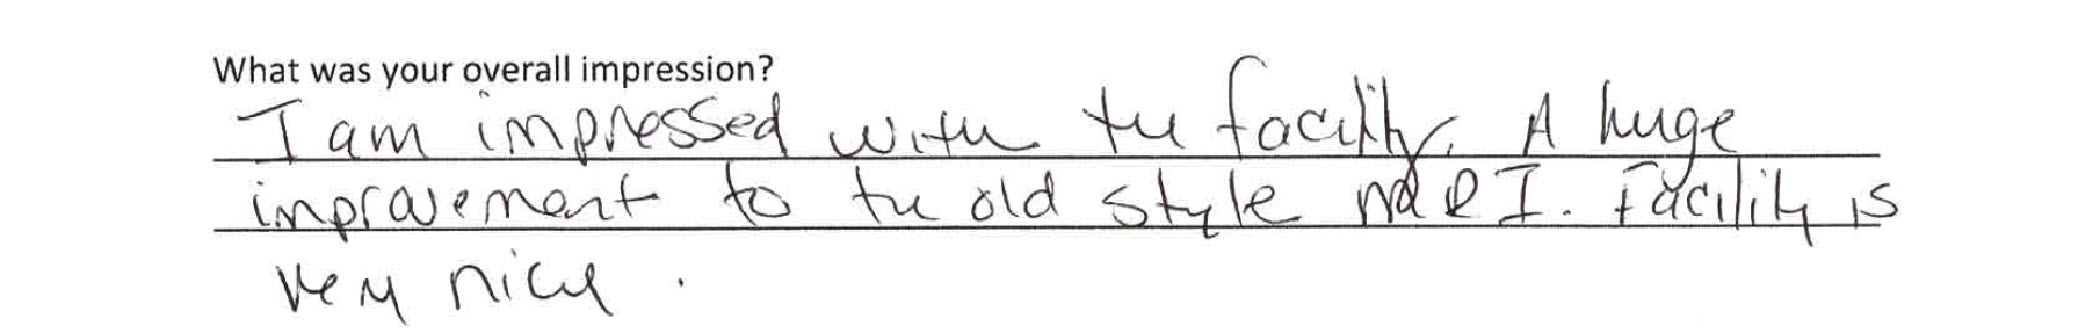 What was your overall impression?
I am impressed with the facility. A huge
improvement to the old style MRI. Facility is
very nice.